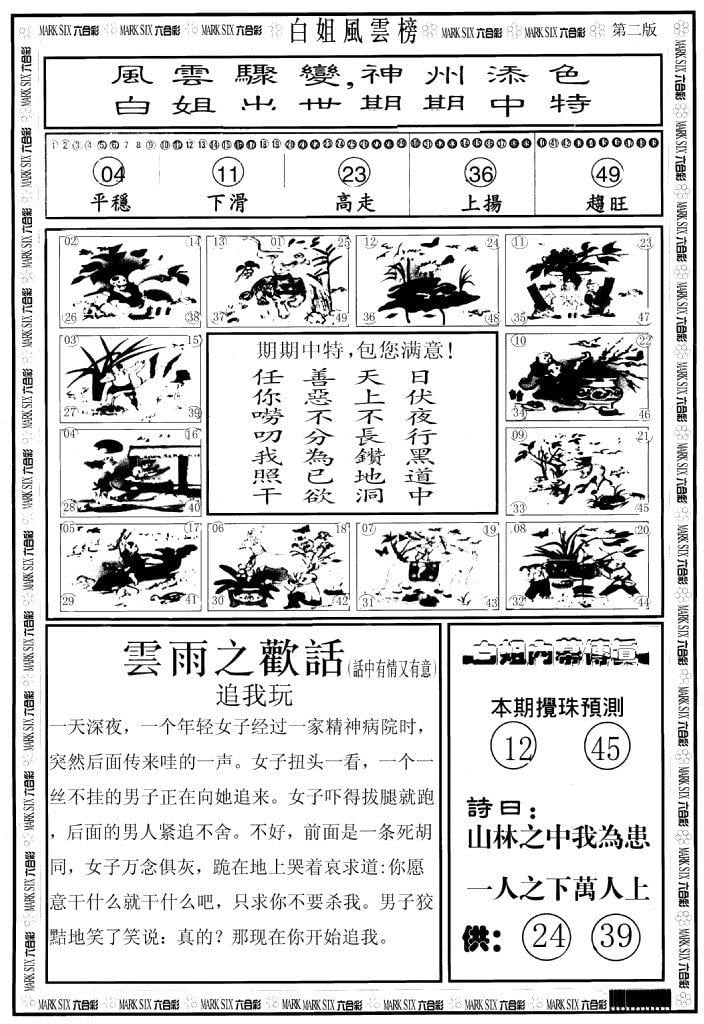 MARK SIX 六合彩 MARK SIX 六合彩 白姐風雲榜 MARK SIX 六合彩 MARK SIX 六合彩 第二版
風雲驟變,神州添色
白姐出世期期中特
04 11 23 36 49
平穩 下滑 高走 上揚 趨旺
02 14 26 38
13 01 25 37 49
12 24 36 48
11 23 35 47
03 15 27 39
10 22 34 46
04 16 28 40
09 21 33 45
05 17 29 41
06 18 30 42
07 19 31 43
08 20 32 44
期期中特,包您满意!
日伏夜行黑道中
天上不長鑽地洞
善惡不分為已欲
任你嘮叨我照干
雲雨之歡話(話中有情又有意)
追我玩
一天深夜，一个年轻女子经过一家精神病院时，
突然后面传来哇的一声。女子扭头一看，一个一
丝不挂的男子正在向她追来。女子吓得拔腿就跑
，后面的男人紧追不舍。不好，前面是一条死胡
同，女子万念俱灰，跪在地上哭着哀求道:你愿
意干什么就干什么吧，只求你不要杀我。男子狡
黠地笑了笑说：真的？那现在你开始追我。
白姐内幕傳真
本期攪珠預測
12 45
詩曰：
山林之中我為患
一人之下萬人上
供： 24 39
MARK SIX 六合彩 MARK SIX 六合彩 MARK SIX 六合彩 MARK SIX 六合彩 MARK SIX 六合彩 MARK SIX 六合彩 MARK SIX 六合彩